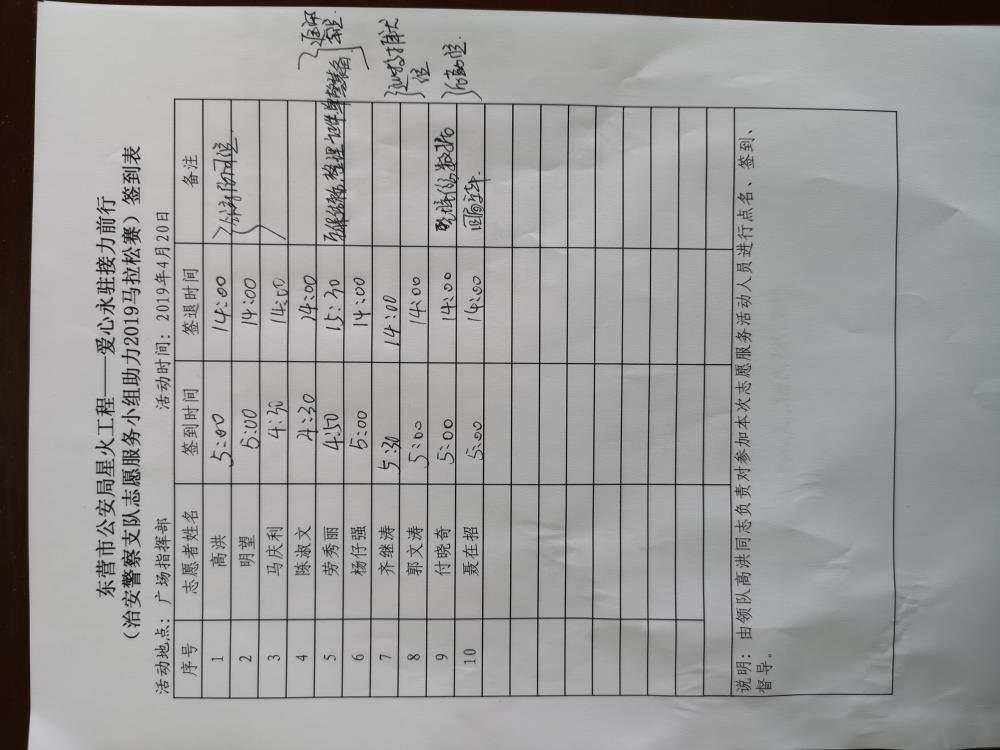 东营市公安局星火工程——爱心永驻接力前行
（治安警察支队志愿服务小组助力2019马拉松赛）签到表
活动地点：广场指挥部 活动时间：2019年4月20日
序号 志愿者姓名 签到时间 签退时间 备注
1 高洪 5:00 14:00
2 明望 5:00 14:00
3 马庆利 4:30 14:00
4 陈淑文 4:30 14:00
5 劳秀丽 4:50 15:30
6 杨仔强 5:00 14:00
7 齐继涛 5:30 14:00
8 郭文涛 5:00 14:00
9 付晓奇 5:00 14:00
10 聂在招 5:00 14:00
说明：由领队高洪同志负责对参加本次志愿服务活动人员进行点名、签到、
督导。